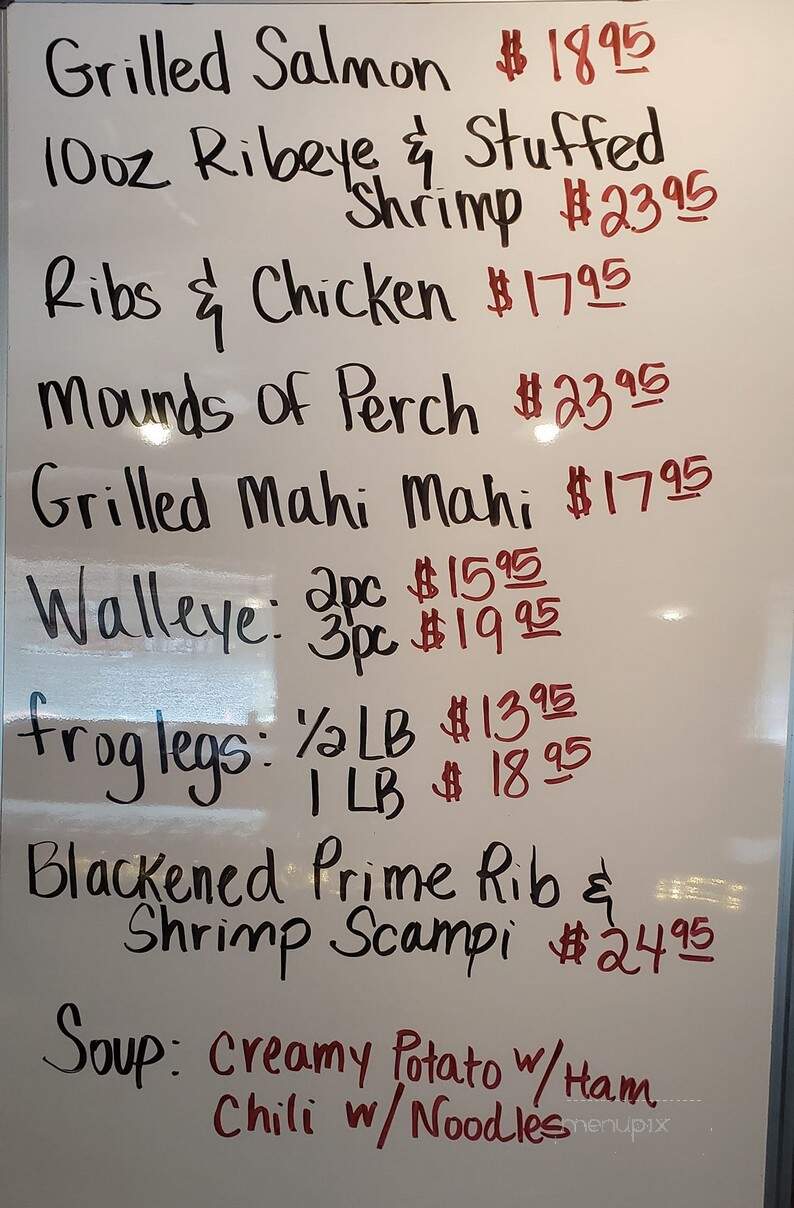 Grilled Salmon $18.95
10oz Ribeye & Stuffed
Shrimp $23.95
Ribs & Chicken $17.95
Mounds of Perch $23.95
Grilled Mahi Mahi $17.95
Walleye: 2pc $15.95
3pc $19.95
froglegs: 1/2 LB $13.95
1 LB $18.95
Blackened Prime Rib &
Shrimp Scampi $24.95
Soup: Creamy Potato w/Ham
Chili w/Noodles
menupix